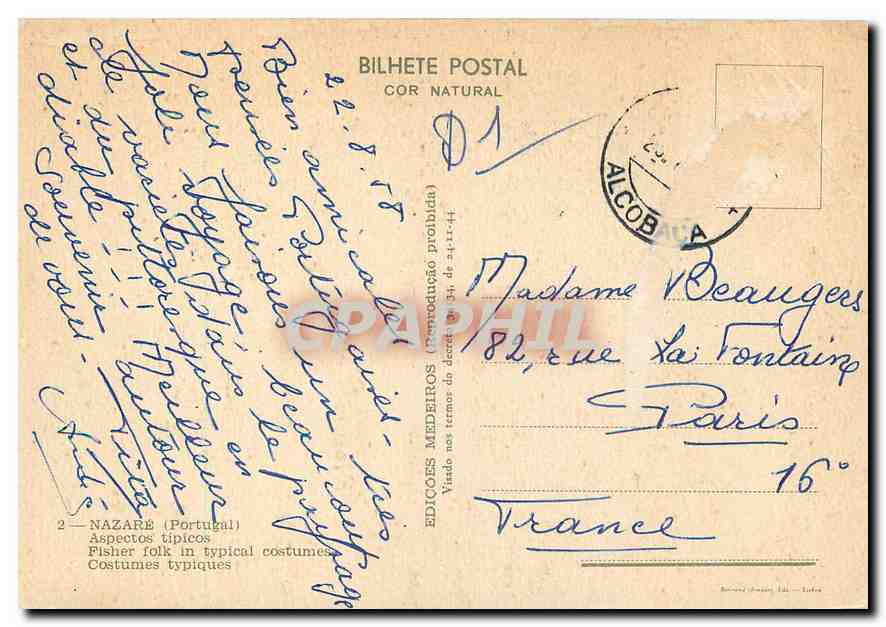 BILHETE POSTAL
COR NATURAL
D1
ALCOBAÇA
22-8-58
Bien amicales
pensées Portugaises - très
Nous faisons un
voyage beaucoup
Joli dans le
de variétés, en paysage
et du pittoresque
diable !!! Meilleur
Souvenir autour
de vous -
André
Madame Beaugers
182, rue La Fontaine
Paris
16°
France
EDIÇÕES MEDEIROS (Reprodução proibida)
Visado nos termos do decreto 30 34, de 24-11-44
2 — NAZARÉ (Portugal)
Aspectos típicos
Fisher folk in typical costumes
Costumes typiques
CPAPHIL